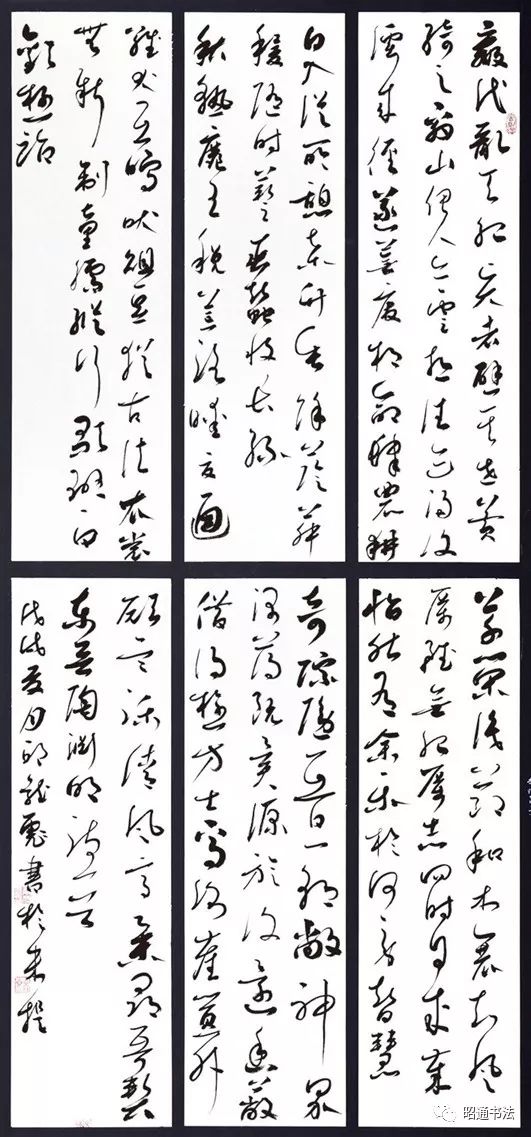 嬴氏亂天紀賢者避其世黃
綺之商山伊人亦云逝往迹浸復
湮來徑遂蕪廢相命肆農耕
日入從所憩桑竹垂餘蔭菽
稷隨時藝春蠶收長絲
秋熟靡王稅荒路曖交通
雞犬互鳴吠俎豆猶古法衣裳
無新制童孺縱行歌班白
歡游詣
草榮識節和木衰知風
厲雖無紀歷志四時自成歲
怡然有余樂於何勞智慧
奇蹤隱五百一朝敞神界
淳薄既異源旋復還幽蔽
借問游方士焉測塵囂外
願言躡清風高舉尋吾契
東晉陶淵明詩一首
戊戌夏月 書於
昭通书法